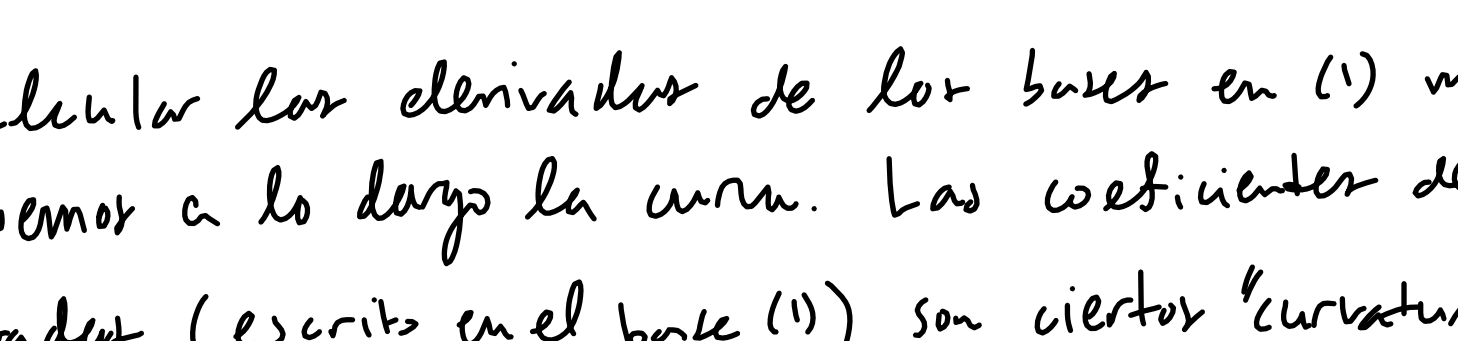 lcular las derivadas de los bases en (1) m
vemos a lo dargo la curva. Las coeficientes de
adas (escrito en el base (1)) son ciertos "curvatu